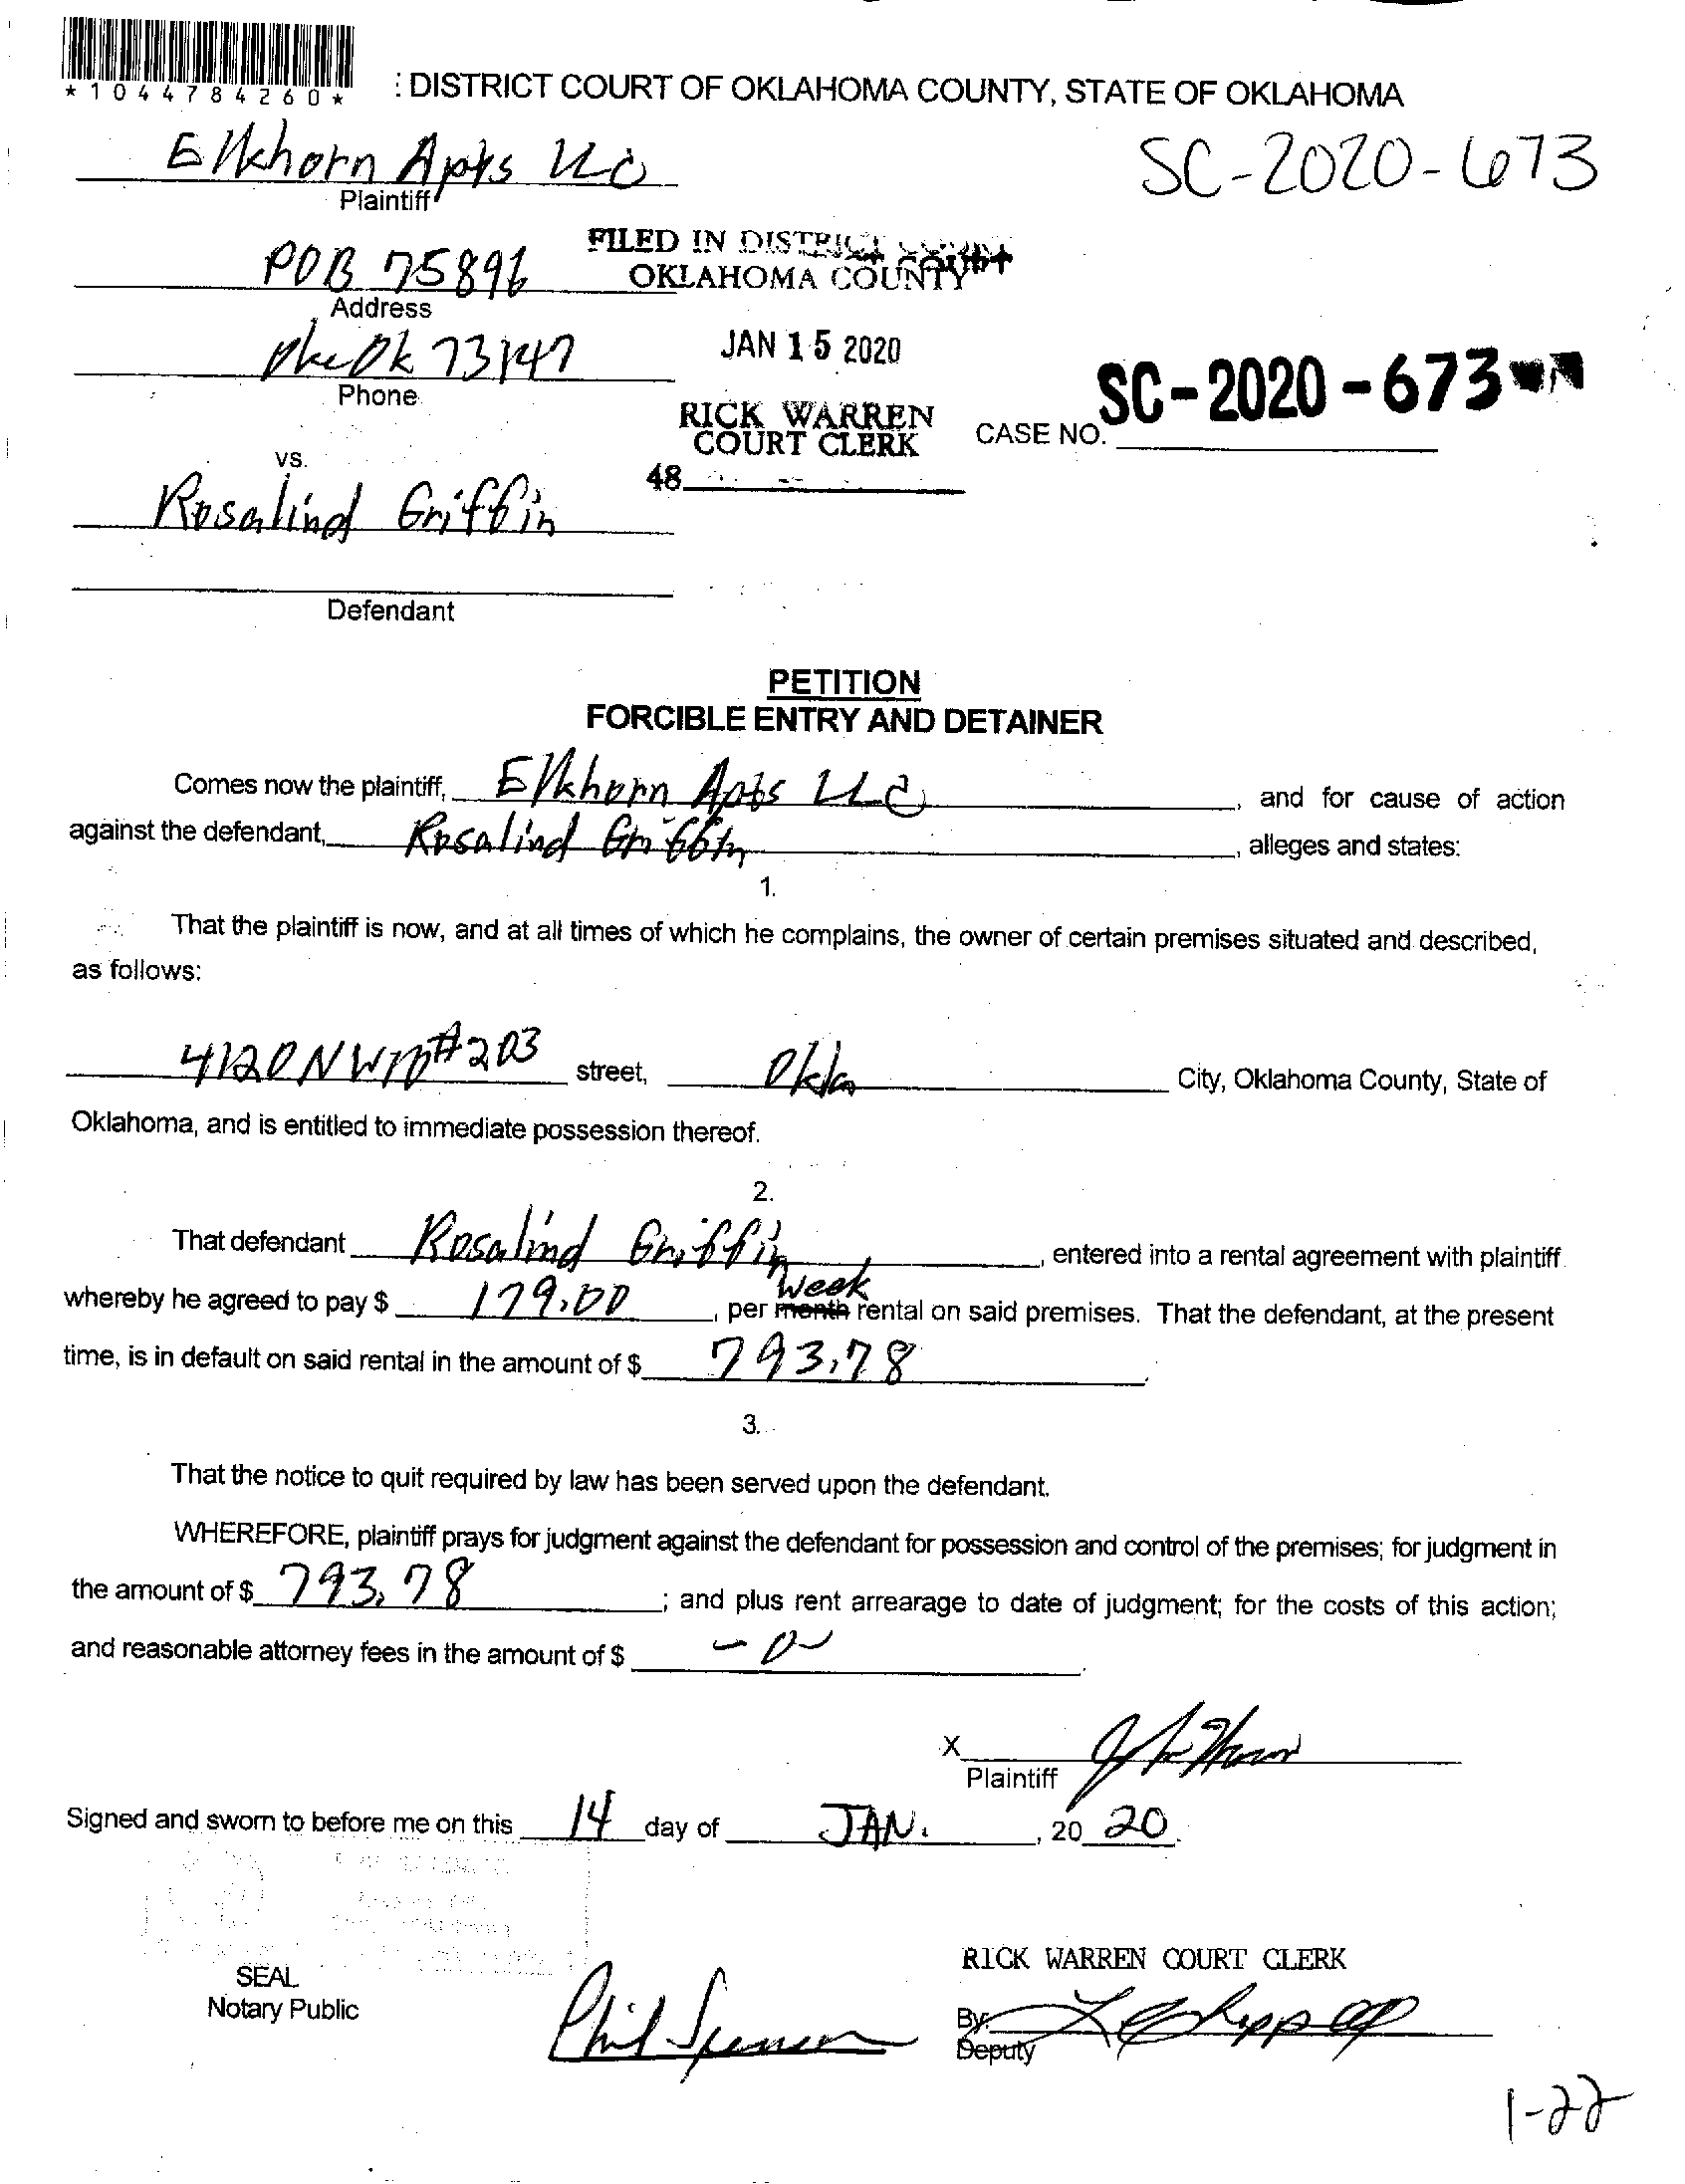 *1044784260*
: DISTRICT COURT OF OKLAHOMA COUNTY, STATE OF OKLAHOMA
Elkhorn Apts LLC
SC-2020-673
Plaintiff
FILED IN DISTRICT COURT
POB 75896
OKLAHOMA COUNTY
Address
Okc Ok 73147
JAN 15 2020
Phone
SC-2020-673
RICK WARREN
COURT CLERK
CASE NO.
vs.
48
Rosalind Griffin
Defendant
PETITION
FORCIBLE ENTRY AND DETAINER
Comes now the plaintiff, Elkhorn Apts LLC, and for cause of action
against the defendant, Rosalind Griffin, alleges and states:
1.
That the plaintiff is now, and at all times of which he complains, the owner of certain premises situated and described,
as follows:
4120 NW10 #203 street, Okla City, Oklahoma County, State of
Oklahoma, and is entitled to immediate possession thereof.
2.
That defendant Rosalind Griffin, entered into a rental agreement with plaintiff
week
whereby he agreed to pay $ 179.00, per month rental on said premises. That the defendant, at the present
time, is in default on said rental in the amount of $ 793.78.
3.
That the notice to quit required by law has been served upon the defendant.
WHEREFORE, plaintiff prays for judgment against the defendant for possession and control of the premises; for judgment in
the amount of $ 793.78; and plus rent arrearage to date of judgment; for the costs of this action;
and reasonable attorney fees in the amount of $ -0-.
X
Plaintiff
Signed and sworn to before me on this 14 day of JAN., 20 20.
RICK WARREN COURT CLERK
SEAL
Notary Public
Phil Spencer
By:
Deputy
1-22